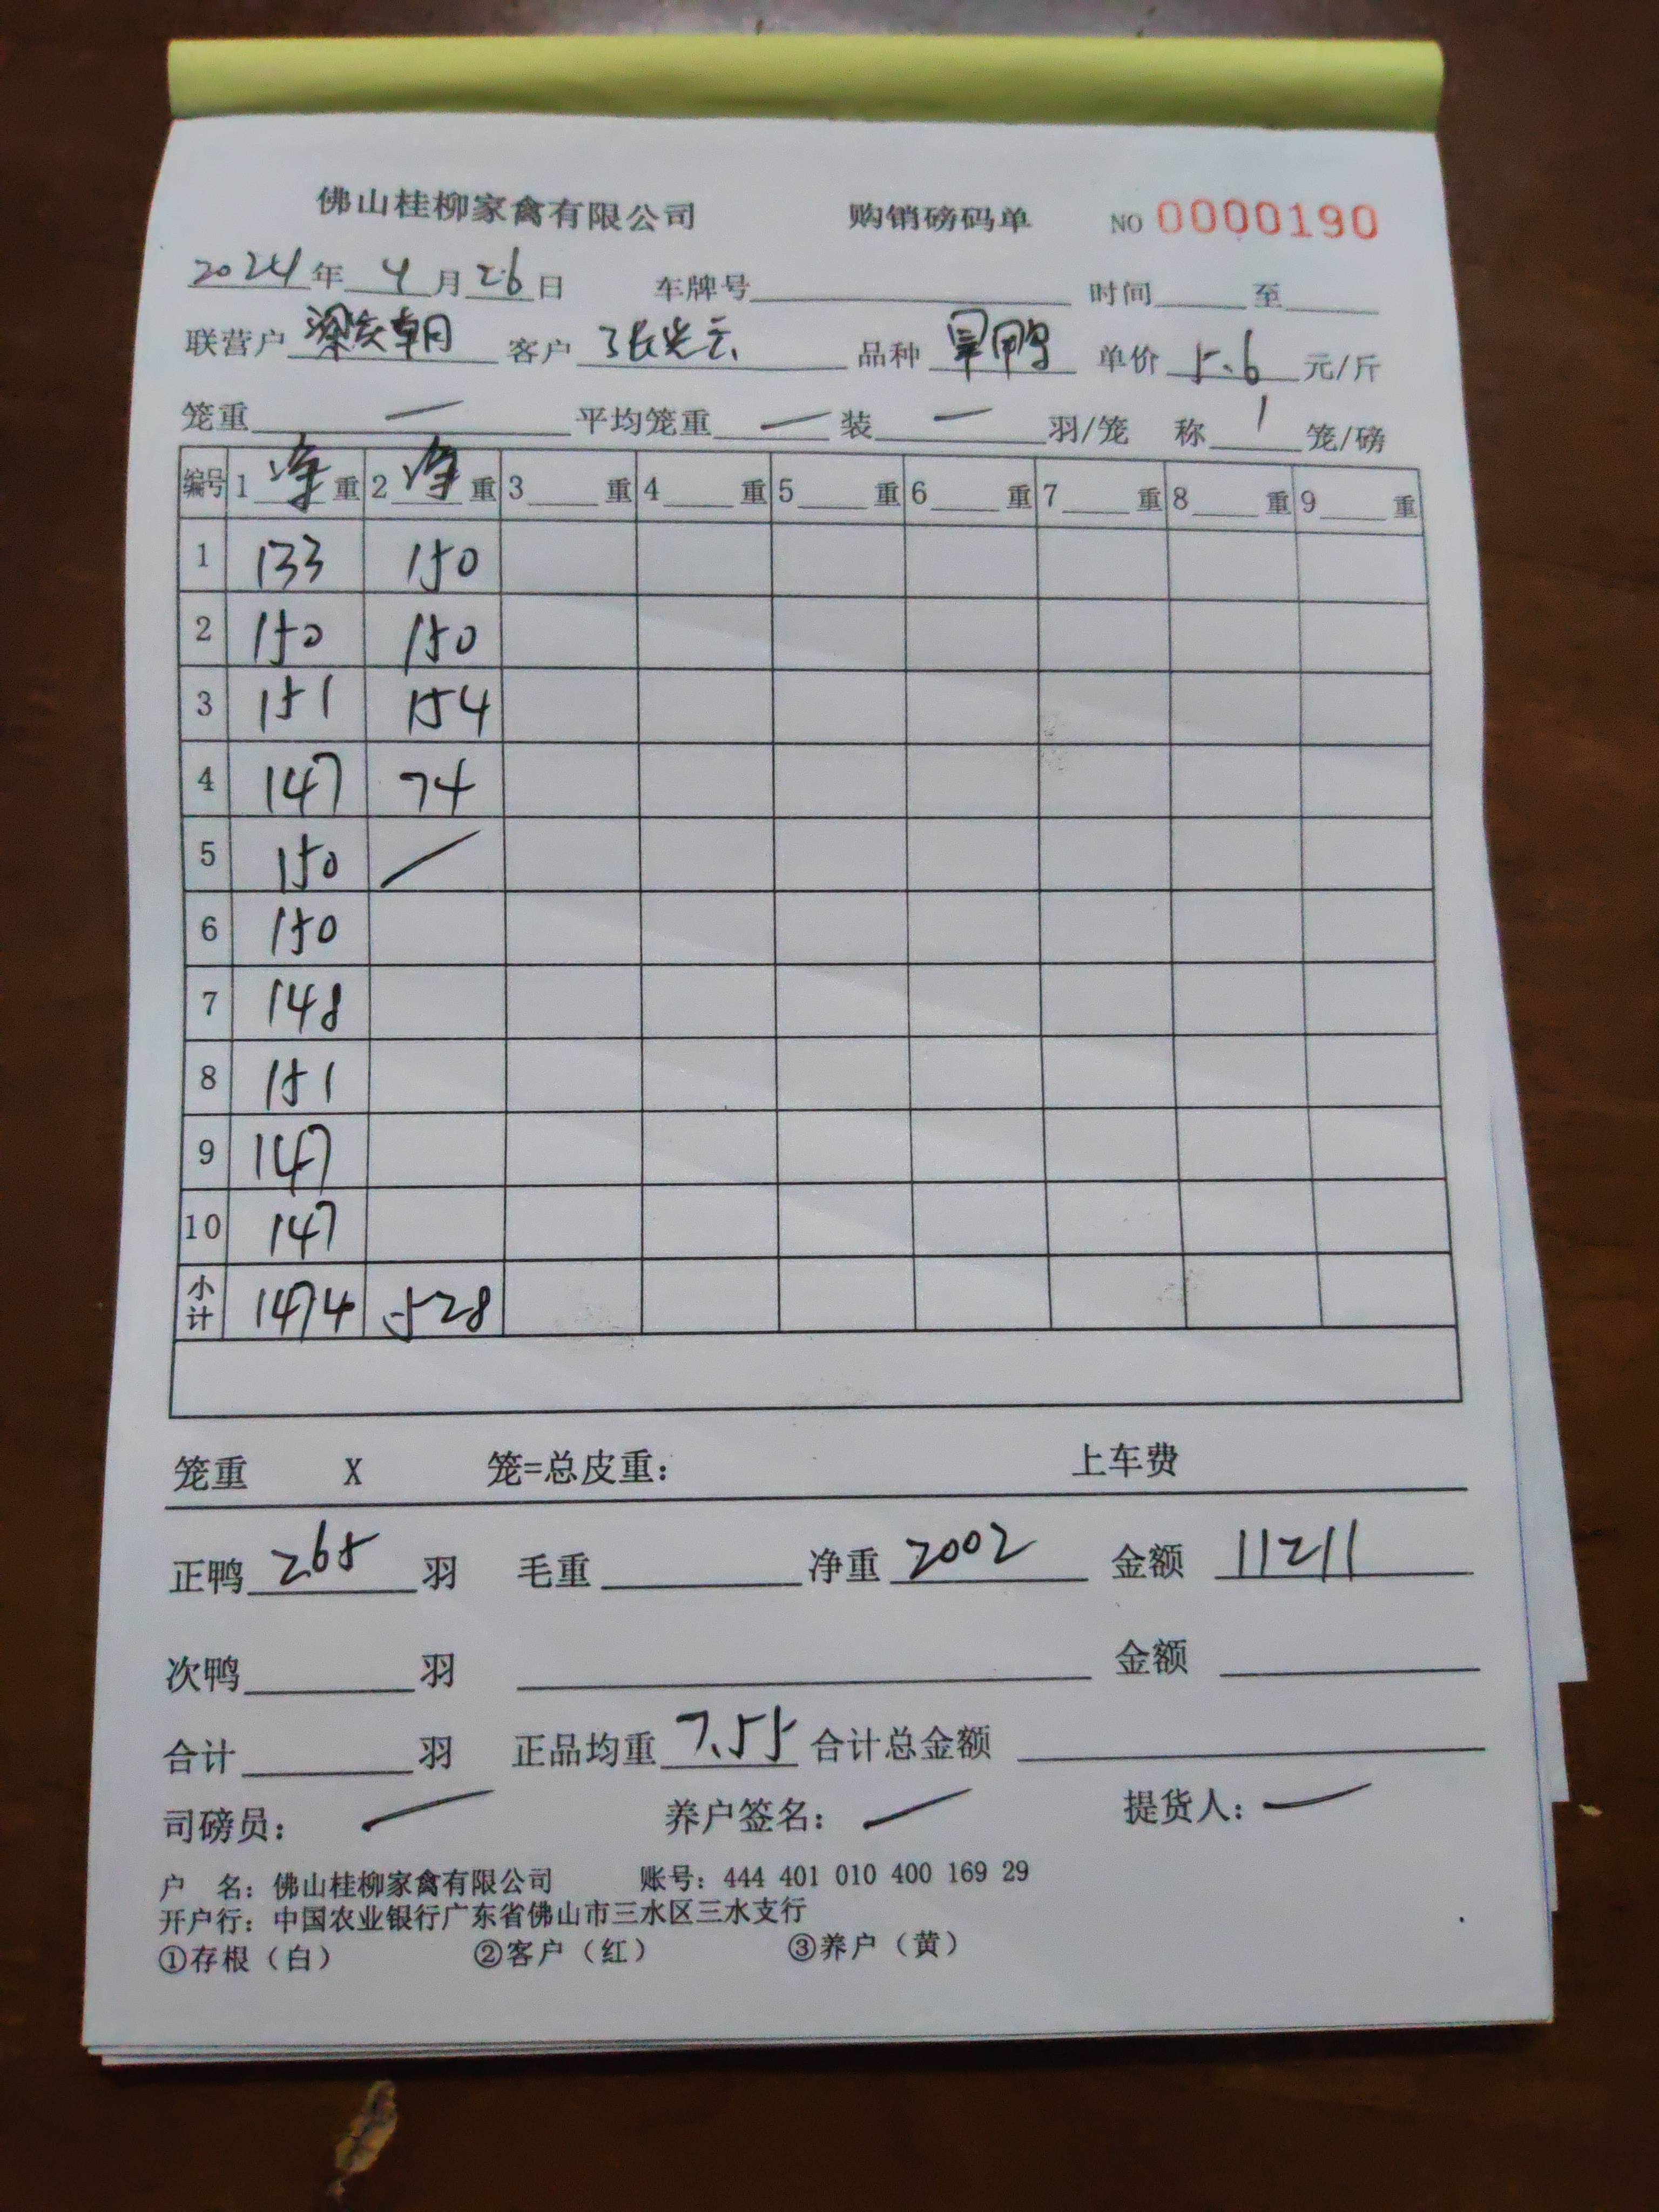 佛山桂柳家禽有限公司 购销磅码单 NO 0000190
2024年 4月26日 车牌号 时间 至
联营户 梁庆朝 客户 张光云 品种 旱鸭 单价 5.6 元/斤
笼重 — 平均笼重 — 装 — 羽/笼 称 1 笼/磅
编号 1 净 重 2 净 重 3 重 4 重 5 重 6 重 7 重 8 重 9 重
1 133 150
2 150 150
3 151 154
4 147 74
5 150 /
6 150
7 148
8 151
9 147
10 147
小计 1474 528
笼重 X 笼=总皮重: 上车费
正鸭 265 羽 毛重 净重 2002 金额 11211
次鸭 羽 金额
合计 羽 正品均重 7.55 合计总金额
司磅员: / 养户签名: / 提货人: /
户 名: 佛山桂柳家禽有限公司 账号: 444 401 010 400 169 29
开户行: 中国农业银行广东省佛山市三水区三水支行
①存根（白） ②客户（红） ③养户（黄）